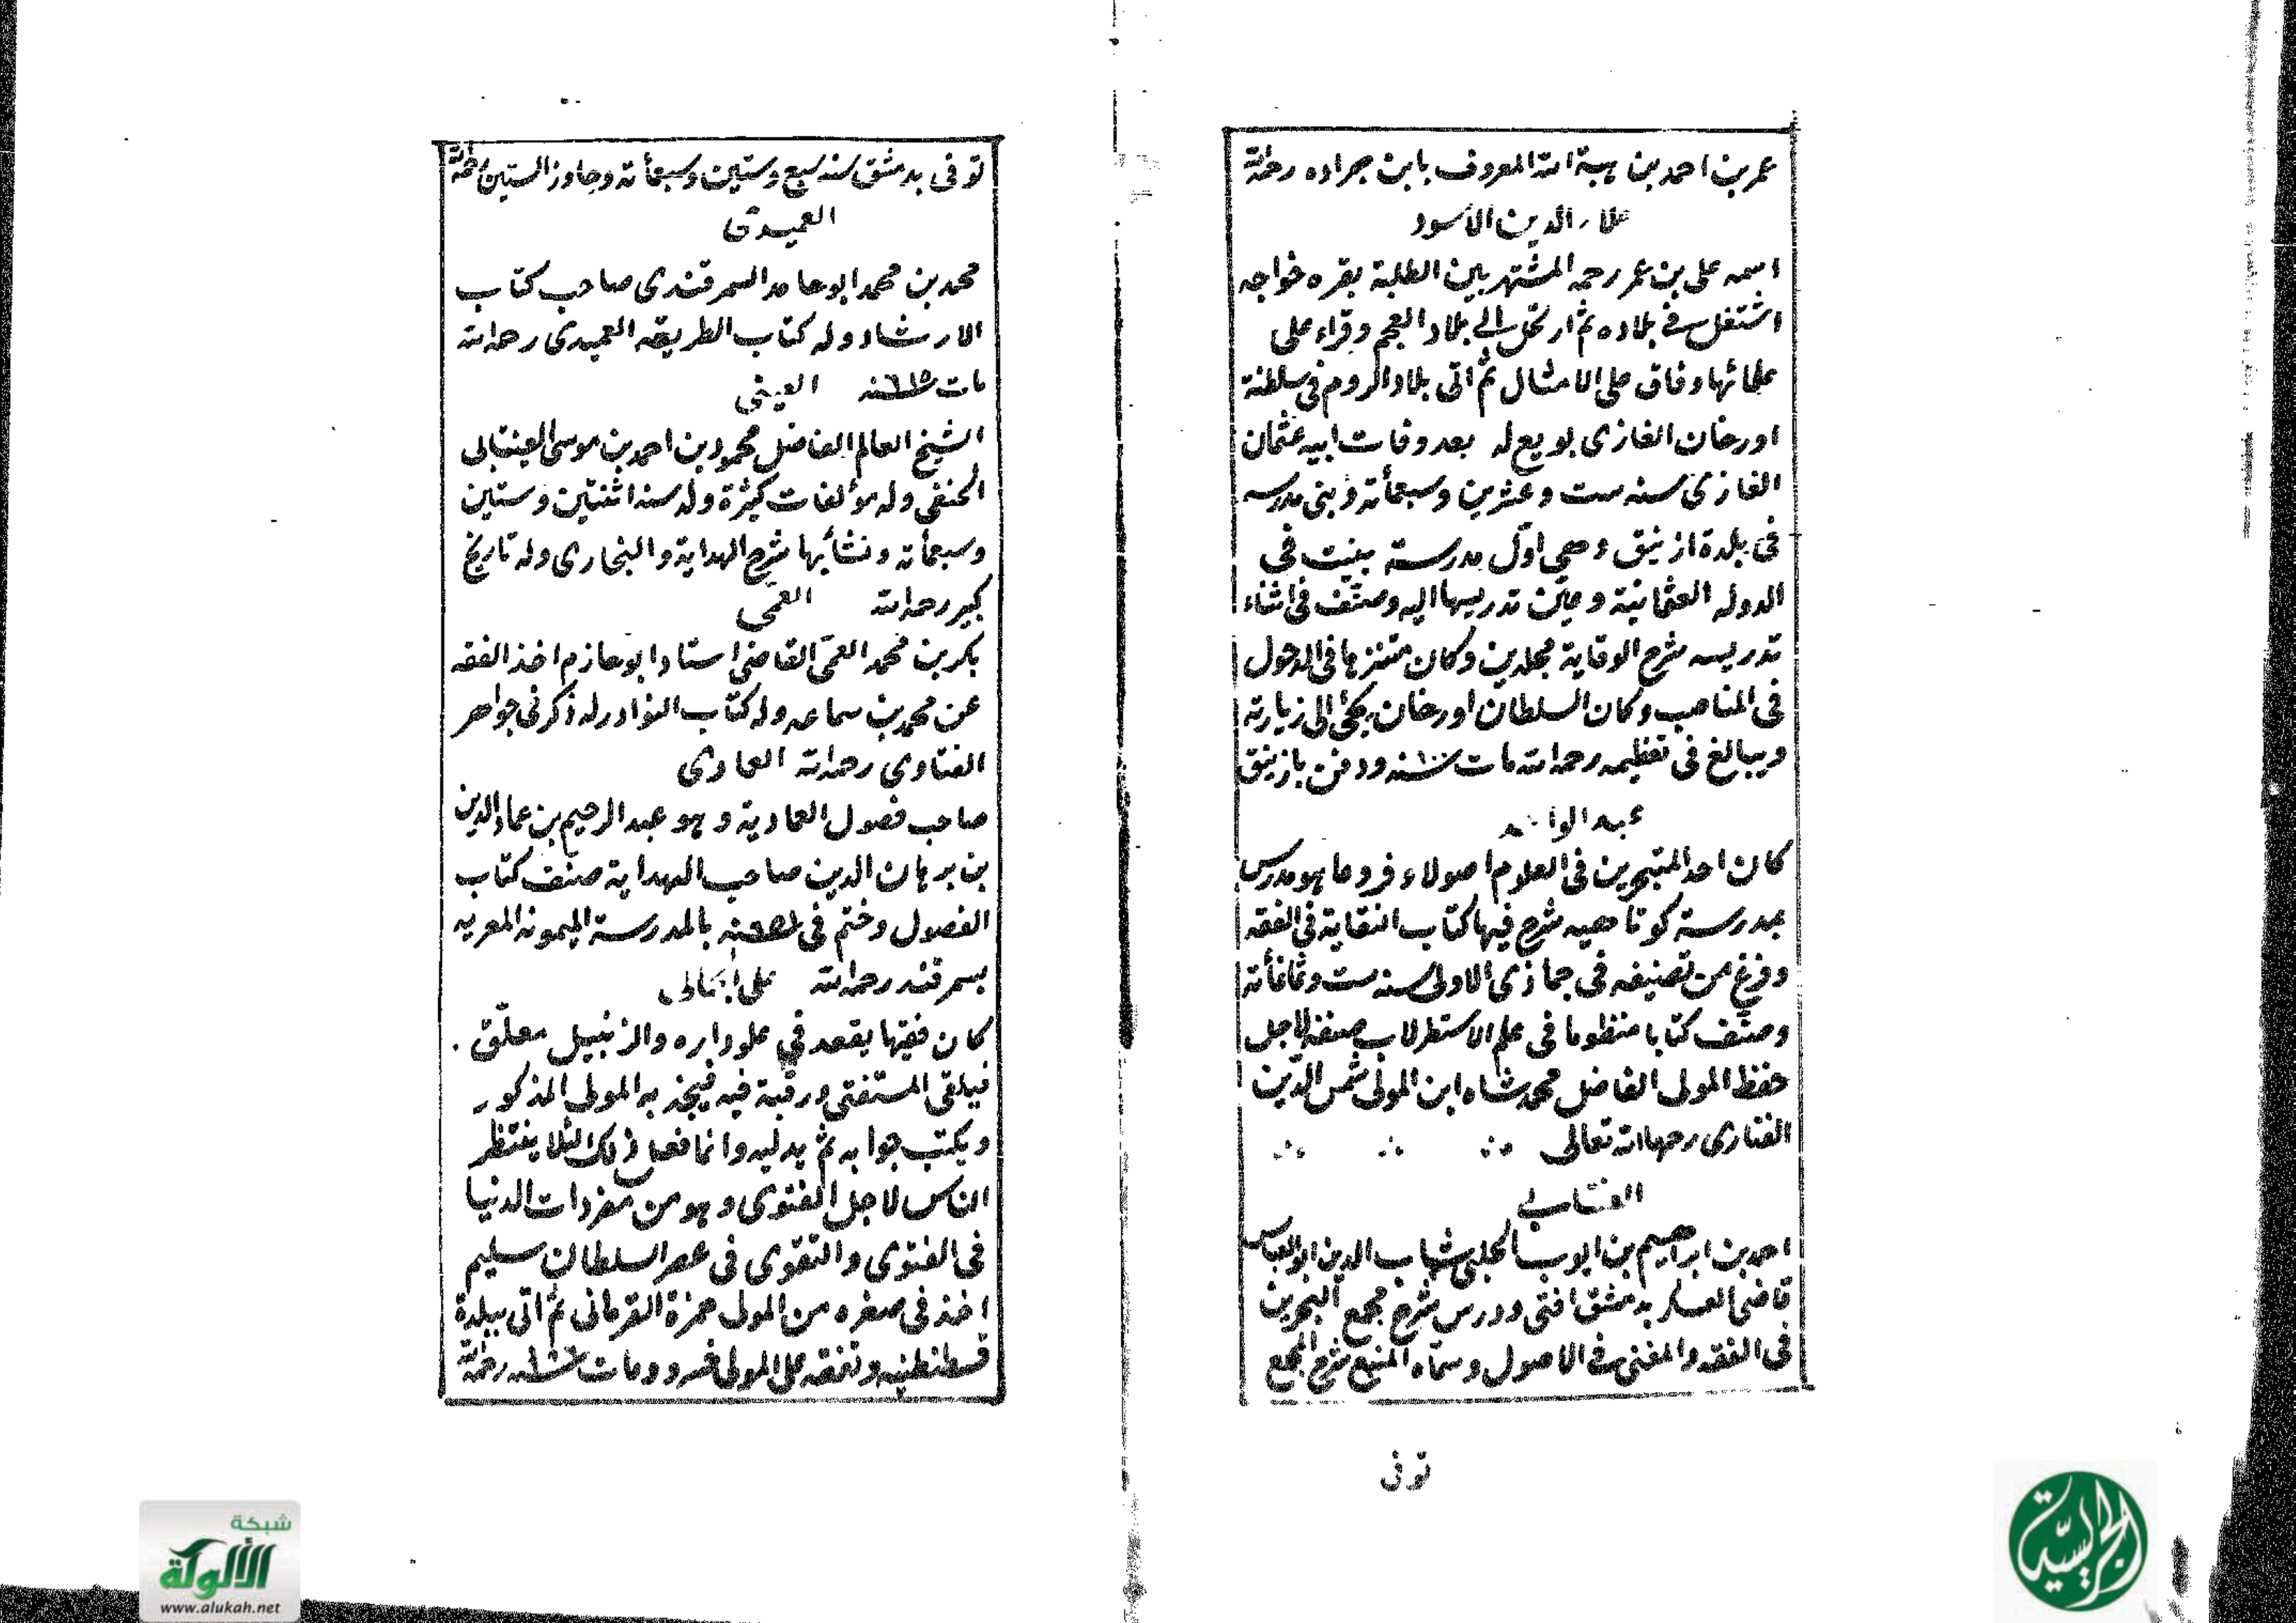 عمر بن احمد بن هبة الله المعروف بابن جراده رحمه الله
علاء الدين الاسود
اسمه على بن عمر رحمه المشتهر بين الطلبة بقره خواجه
اشتغل فى بلاده ثم ارتحل الى بلاد العجم وقراء على
علمائها وفاق على الامثال ثم اتى بلاد الروم فى سلطنة
اورخان الغازى بويع له بعد وفات ابيه عثمان
الغازى سنه ست وعشرين وسبعمأته وبنى مدرسه
فى بلدة ازنيق وهى اول مدرسة بنيت فى
الدوله العثمانية وعين تدريسها اليه وصنف فى اثناء
تدريسه شرح الوقاية مجلدين وكان متنزها فى الدخول
فى المناصب وكان السلطان اورخان يجئ الى زيارته
ويبالغ فى تعظيمه رحمه الله مات سنه ودفن بازنيق
عبد الواحد
كان احد المتبحرين فى العلوم اصولاء وفروعا هو مدرس
بمدرسة كوتاهيه شرح فيها كتاب النقاية فى الفقه
وفرغ من تصنيفه فى جمازى الاولى سنه ست وثمانمأته
وصنف كتابا منظوما فى علم الاسترلاب صنفه لاجل
حفظ المولى الفاضل محمد شاه ابن المولى شمس الدين
الفنارى رحمها الله تعالى
العنتابى
احمد بن ابراهيم بن ايوب الحلبى شهاب الدين ابو العباس
قاضى العسكر بدمشق افتى ودرس شرح مجمع البحرين
فى الفقه والمغنى فى الاصول وسماه المنبع شرح المجمع
توفى
توفى بدمشق سنه سبع وستين وسبعمأته وجاوز الستين رحمه الله
العميدى
محمد بن محمد ابو حامد السمرقندى صاحب كتاب
الارشاد وله كتاب الطريقه العميدى رحمه الله
مات سنه ٦١٥ العينى
الشيخ العالم الفاضل محمود بن احمد بن موسى العينتابى
الحنفى وله مؤلفات كثيرة ولد سنه اثنتين وستين
وسبعمأته ونشأ بها شرح الهداية والبخارى وله تاريخ
كبير رحمه الله العمى
بكر بن محمد العمى القاضى استاد ابو حازم اخذ الفقه
عن محمد بن سماعه وله كتاب النوادر له ذكر فى جواهر
الفتاوى رحمه الله العمادى
صاحب فصول العمادية وهو عبد الرحيم بن عماد الدين
بن برهان الدين صاحب الهداية صنف كتاب
الفصول وختم فى سنه بالمدرسة الميمونه المعريه
بسمرقند رحمه الله على الجمالى
كان فقيها يقعد في علو داره والزنبيل معلق
فيلقى المستفتى ورقبة فيه فيجذبه المولى المذكور
ويكتب جوابه ثم يدليه وانما فعل ذلك لئلا ينتظر
الناس لاجل الفتوى وهو من مفردات الدنيا
فى الفتوى والتقوى فى عصر السلطان سليم
اخذ فى صغره من المولى حمزة القرمانى ثم اتى ببلدة
قسطنطنيه وتفقه على المولى خسرو ومات سنه رحمه الله
شبكة
الألوكة
www.alukah.net